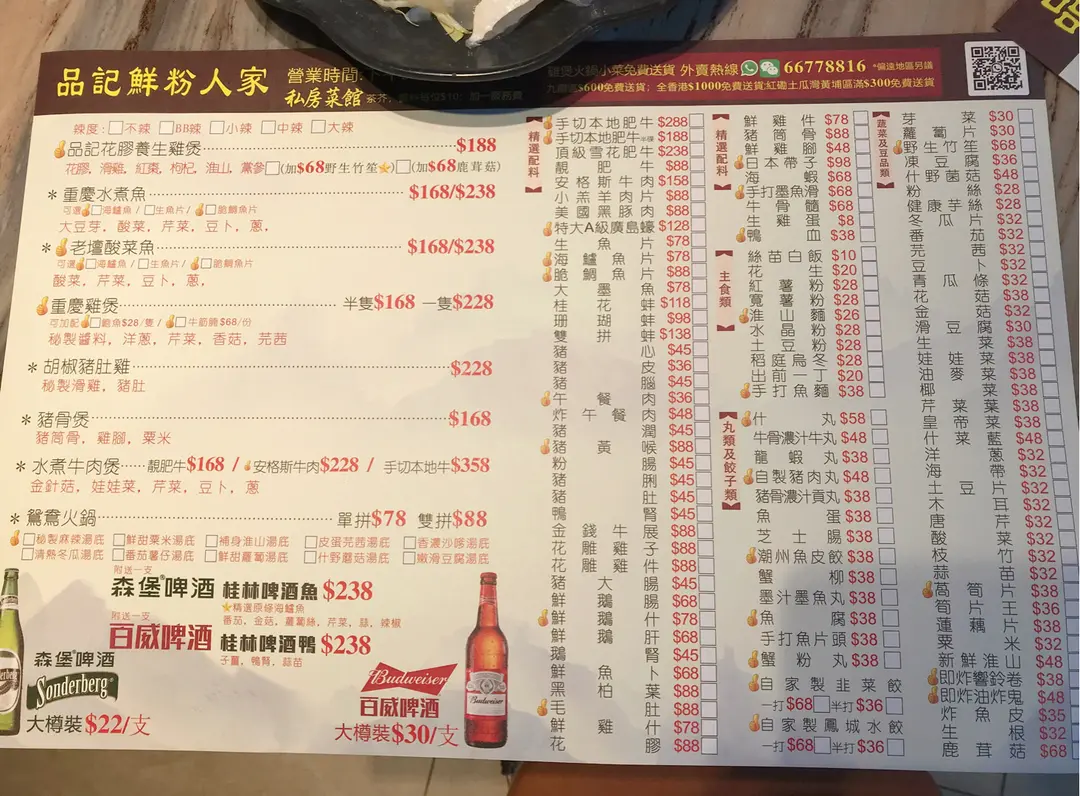 品記鮮粉人家
營業時間:下午
私房菜館
雞煲火鍋小菜免費送貨 外賣熱線 66778816 *偏遠地區另議
$600免費送貨；全香港$1000免費送貨;紅磡土瓜灣黃埔區滿$300免費送貨
辣度：□不辣 □BB辣 □小辣 □中辣 □大辣
品記花膠養生雞煲 $188
花膠，滑雞，紅棗，枸杞，淮山，黨參□(加$68野生竹笙)□(加$68鹿茸菇)
*重慶水煮魚 $168/$238
可選□海鱸魚 / □生魚片 / □脆鯛魚片
大豆芽，酸菜，芹菜，豆卜，蔥，
*老壇酸菜魚 $168/$238
可選□海鱸魚 / □生魚片 / □脆鯛魚片
酸菜，芹菜，豆卜，蔥，
重慶雞煲 半隻$168 一隻$228
可加配□鮑魚$28/隻 / □牛筋腩$68/份
秘製醬料，洋蔥，芹菜，香菇，芫茜
*胡椒豬肚雞 $228
秘製滑雞，豬肚
*豬骨煲 $168
豬筒骨，雞腳，粟米
*水煮牛肉煲 靚肥牛$168 / 安格斯牛肉$228 / 手切本地牛$358
金針菇，娃娃菜，芹菜，豆卜，蔥
*鴛鴦火鍋 單拼$78 雙拼$88
□秘製麻辣湯底 □鮮甜粟米湯底 □補身淮山湯底 □皮蛋芫茜湯底 □香濃沙嗲湯底
□清熱冬瓜湯底 □番茄薯仔湯底 □鮮甜蘿蔔湯底 □什野蘑菇湯底 □嫩滑豆腐湯底
附送一支
森堡®啤酒 桂林啤酒魚$238
精選原條海鱸魚
番茄，金菇，蘿蔔絲，芹菜，蒜，辣椒
附送一支
百威啤酒 桂林啤酒鴨$238
子薑，鴨腎，蒜苗
森堡®啤酒
Sonderberg
大樽裝$22/支
Budweiser
百威啤酒
大樽裝$30/支
Budweiser
精選配料
手切本地肥牛 $288
手切本地肥牛半碟 $188
頂級雪花肥牛 $238
靚肥牛 $88
安格斯牛肉 $158
小羔羊肉片 $88
美國黑豚肉 $88
特大A級廣島蠔 $128
生魚片 $78
海鱸魚片 $78
脆鯛魚片 $88
大墨魚 $78
桂花蚌 $118
珊瑚蚌 $98
雙拼蚌 $138
豬心 $45
豬皮 $36
豬腦 $45
午餐肉 $36
炸午餐肉 $48
豬潤 $45
豬黃喉 $88
粉腸 $45
豬脷 $45
豬肚 $45
鴨腎 $45
金錢牛展 $88
花雕雞子 $88
花雕雞件 $88
豬大腸 $45
鮮鵝腸 $68
鮮鵝什 $78
鮮鵝肝 $68
鵝腎 $45
鮮魚卜 $68
黑柏葉 $88
毛肚 $88
鮮雞什 $78
花膠 $88
精選配料
鮮雞件 $78
豬筒骨 $88
鮮雞腳 $48
日本帶子 $98
海蝦 $68
手打墨魚滑 $68
牛骨髓 $68
生雞蛋 $8
鴨血 $38
主食類
絲苗白飯 $10
花生 $20
紅薯粉 $28
寬薯粉 $28
淮山麵 $26
水晶粉 $28
土豆粉 $28
稻庭烏冬 $28
出前一丁 $20
手打魚麵 $38
丸類及餃子類
什丸 $58
牛骨濃汁牛丸 $48
龍蝦丸 $38
自製豬肉丸 $48
豬骨濃汁貢丸 $38
魚蛋 $38
芝士腸 $38
潮州魚皮餃 $38
蟹柳 $38
墨汁墨魚丸 $38
魚腐 $38
手打魚片頭 $38
蟹粉丸 $38
自家製韭菜餃
一打$68□半打$36□
自家製鳳城水餃
一打$68□半打$36□
蔬菜及豆品類
芽菜 $30
蘿蔔片 $30
野生竹笙 $68
凍豆腐 $36
什野菌菇 $48
粉絲 $28
健康芋絲 $28
冬瓜片 $32
番茄 $32
芫茜 $32
豆卜 $32
青瓜條 $32
花菇 $38
金菇 $38
滑豆腐 $30
生菜 $38
娃娃菜 $38
油麥菜 $38
椰菜 $38
芹菜葉 $38
皇帝菜 $38
什菜藍 $48
洋蔥 $32
海帶 $32
土豆片 $32
木耳 $32
唐芹 $32
酸菜 $32
枝竹 $32
蒜苗 $32
萵筍片 $38
筍王 $36
蓮藕片 $38
粟米 $32
新鮮淮山 $48
即炸響鈴卷 $38
即炸油炸鬼 $48
炸魚皮 $35
生根 $32
鹿茸菇 $68